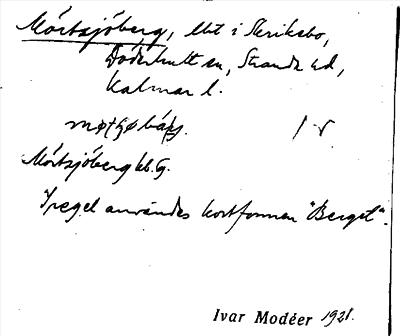 Mörtsjöberg, lht i Skriksbo,
Döderhult sn, Stranda hd,
Kalmar l.
Mörtsjöberg
I regel användes kortformen "Berget".
Ivar Modéer 1928.